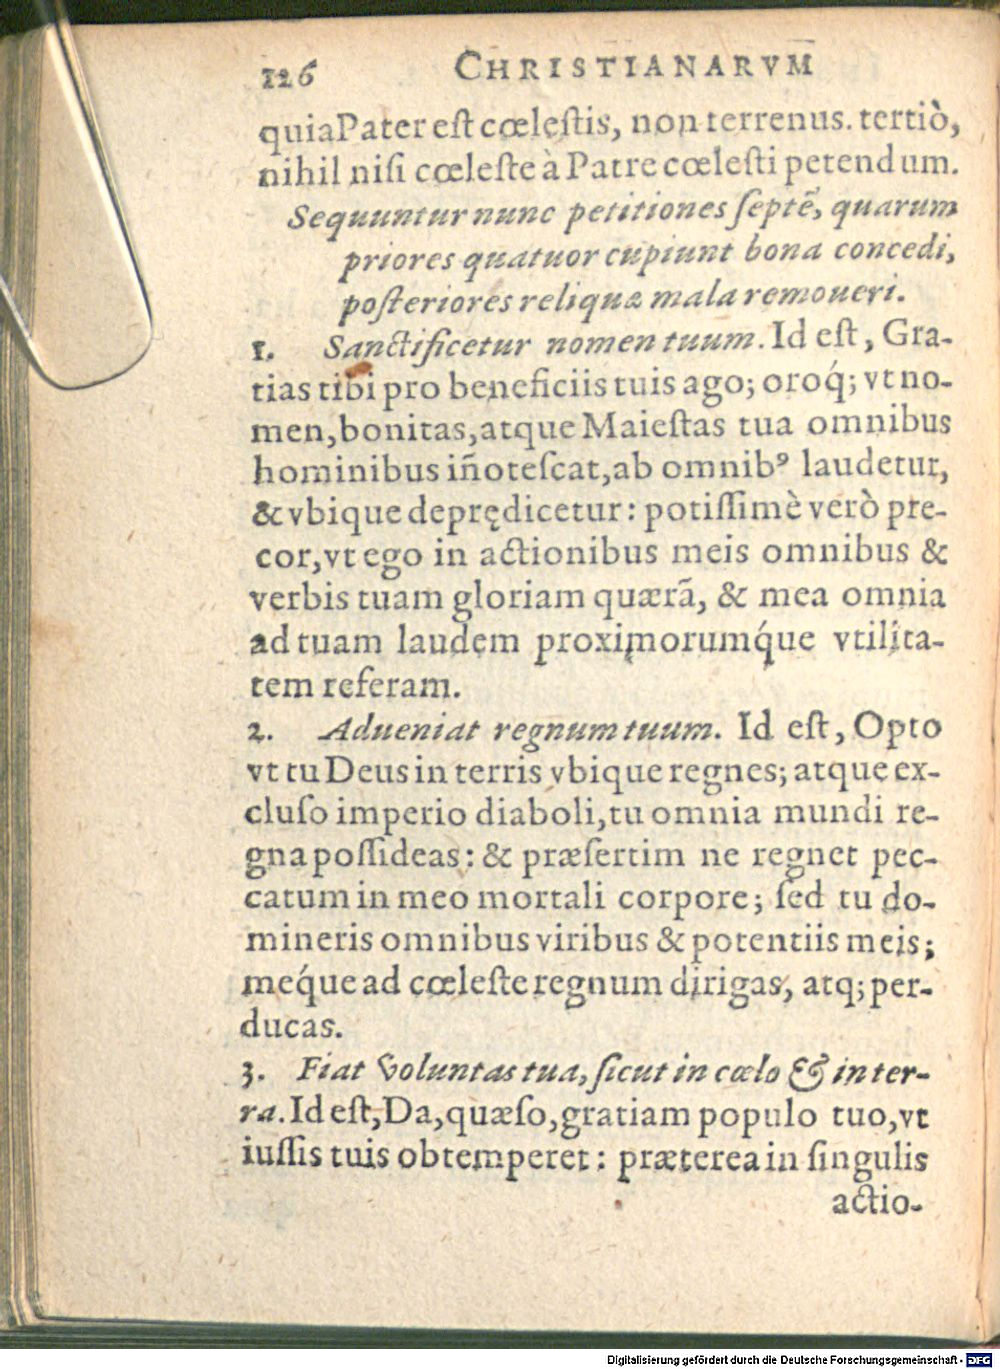 126 CHRISTIANARVM
quia Pater est cœlestis, non terrenus. tertiò,
nihil nisi cœleste à Patre cœlesti petendum.
Sequuntur nunc petitiones septẽ, quarum
priores quatuor cupiunt bona concedi,
posteriores reliquæ mala remoueri.
1. Sanctificetur nomen tuum. Id est, Gra-
tias tibi pro beneficiis tuis ago; oroq́; vt no-
men, bonitas, atque Maiestas tua omnibus
hominibus iñotescat, ab omnibꝰ laudetur,
& vbique deprędicetur: potissimè verò pre-
cor, vt ego in actionibus meis omnibus &
verbis tuam gloriam quærã, & mea omnia
ad tuam laudem proximorumq́ue vtilita-
tem referam.
2. Adueniat regnum tuum. Id est, Opto
vt tu Deus in terris vbique regnes; atque ex-
cluso imperio diaboli, tu omnia mundi re-
gna possideas: & præsertim ne regnet pec-
catum in meo mortali corpore; sed tu do-
mineris omnibus viribus & potentiis meis;
meq́ue ad cœleste regnum dirigas, atq; per-
ducas.
3. Fiat voluntas tua, sicut in cœlo & in ter-
ra. Id est, Da, quæso, gratiam populo tuo, vt
iussis tuis obtemperet: præterea in singulis
actio-
Digitalisierung gefördert durch die Deutsche Forschungsgemeinschaft - DFG